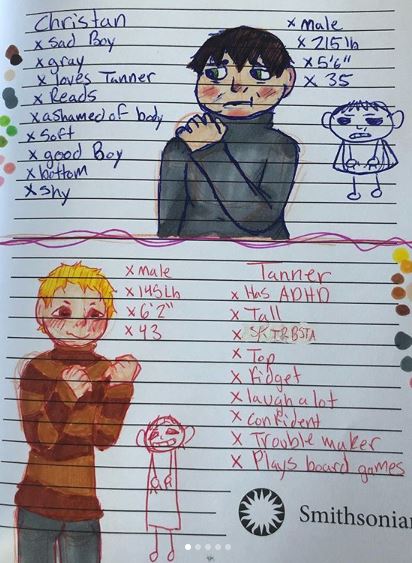 Christan
x sad Boy
x gray
x loves Tanner
x Reads
x ashamed of body
x soft
x good Boy
x bottom
x shy
x male
x 215 lb
x 5'6"
x 35
x male
x 145 Lb
x 6'2"
x 43
Tanner
x Has ADHD
x Tall
x
x Top
x Fidget
x laugh a lot
x confident
x Trouble maker
x Plays board games
Smithsonian